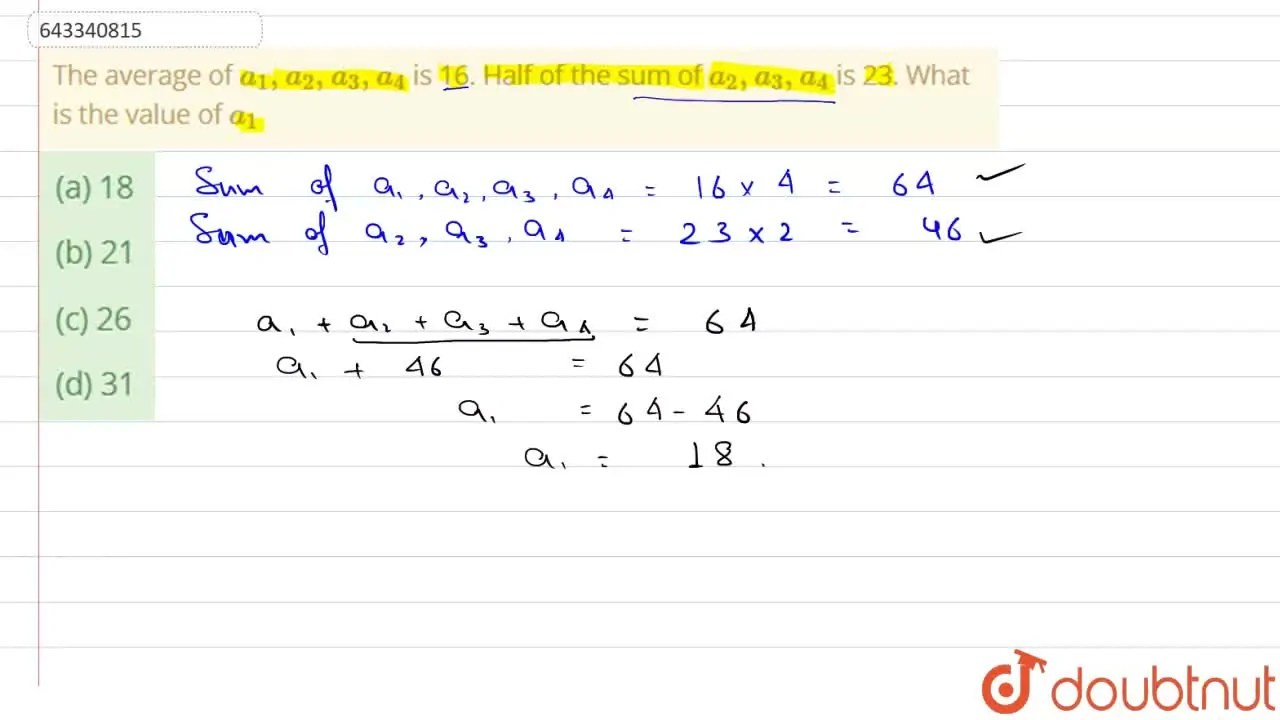 643340815
The average of a₁, a₂, a₃, a₄ is 16. Half of the sum of a₂, a₃, a₄ is 23. What
is the value of a₁
(a) 18
Sum of a₁, a₂, a₃, a₄ = 16 × 4 = 64
Sum of a₂, a₃, a₄ = 23 × 2 = 46
(b) 21
(c) 26
a₁ + a₂ + a₃ + a₄ = 64
a₁ + 46 = 64
(d) 31
a₁ = 64 - 46
a₁ = 18.
doubtnut